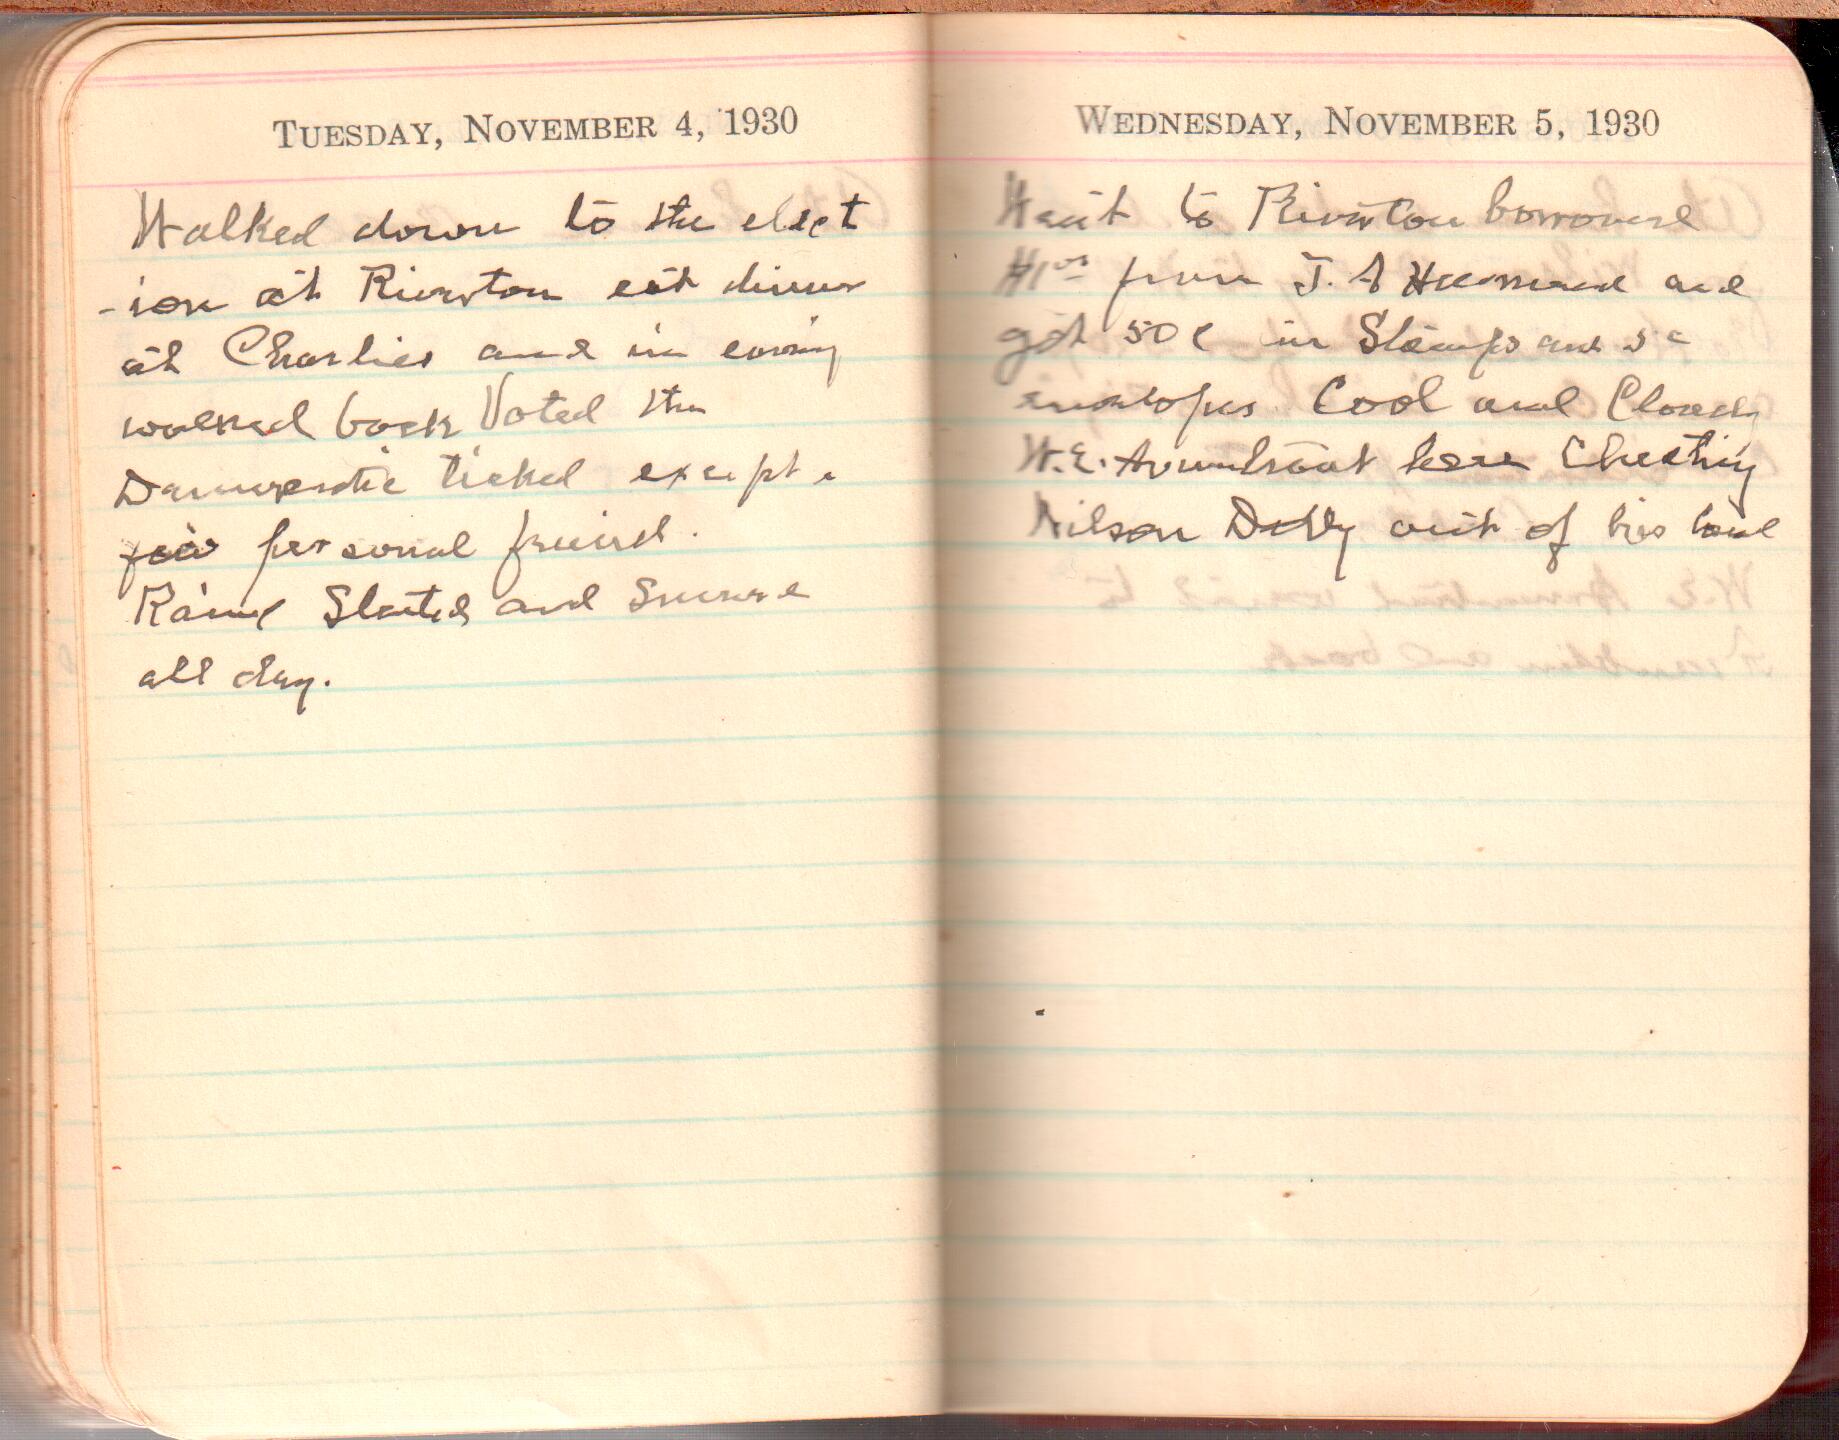 TUESDAY, NOVEMBER 4, 1930
Walked down to the elect
-ion at Riverton eat dinner
at Charlies and in
walked back Voted the
Democratic ticked except a
few personal friend.
Rained Sleated and Snowed
all day.
WEDNESDAY, NOVEMBER 5, 1930
Went to Riverton borrowed
from J. A and
got 50¢ in Stamps and 5¢
envelopes Cool and Cloudy
W.E. Armentrout here Cheating
Wilson Devly out of his land